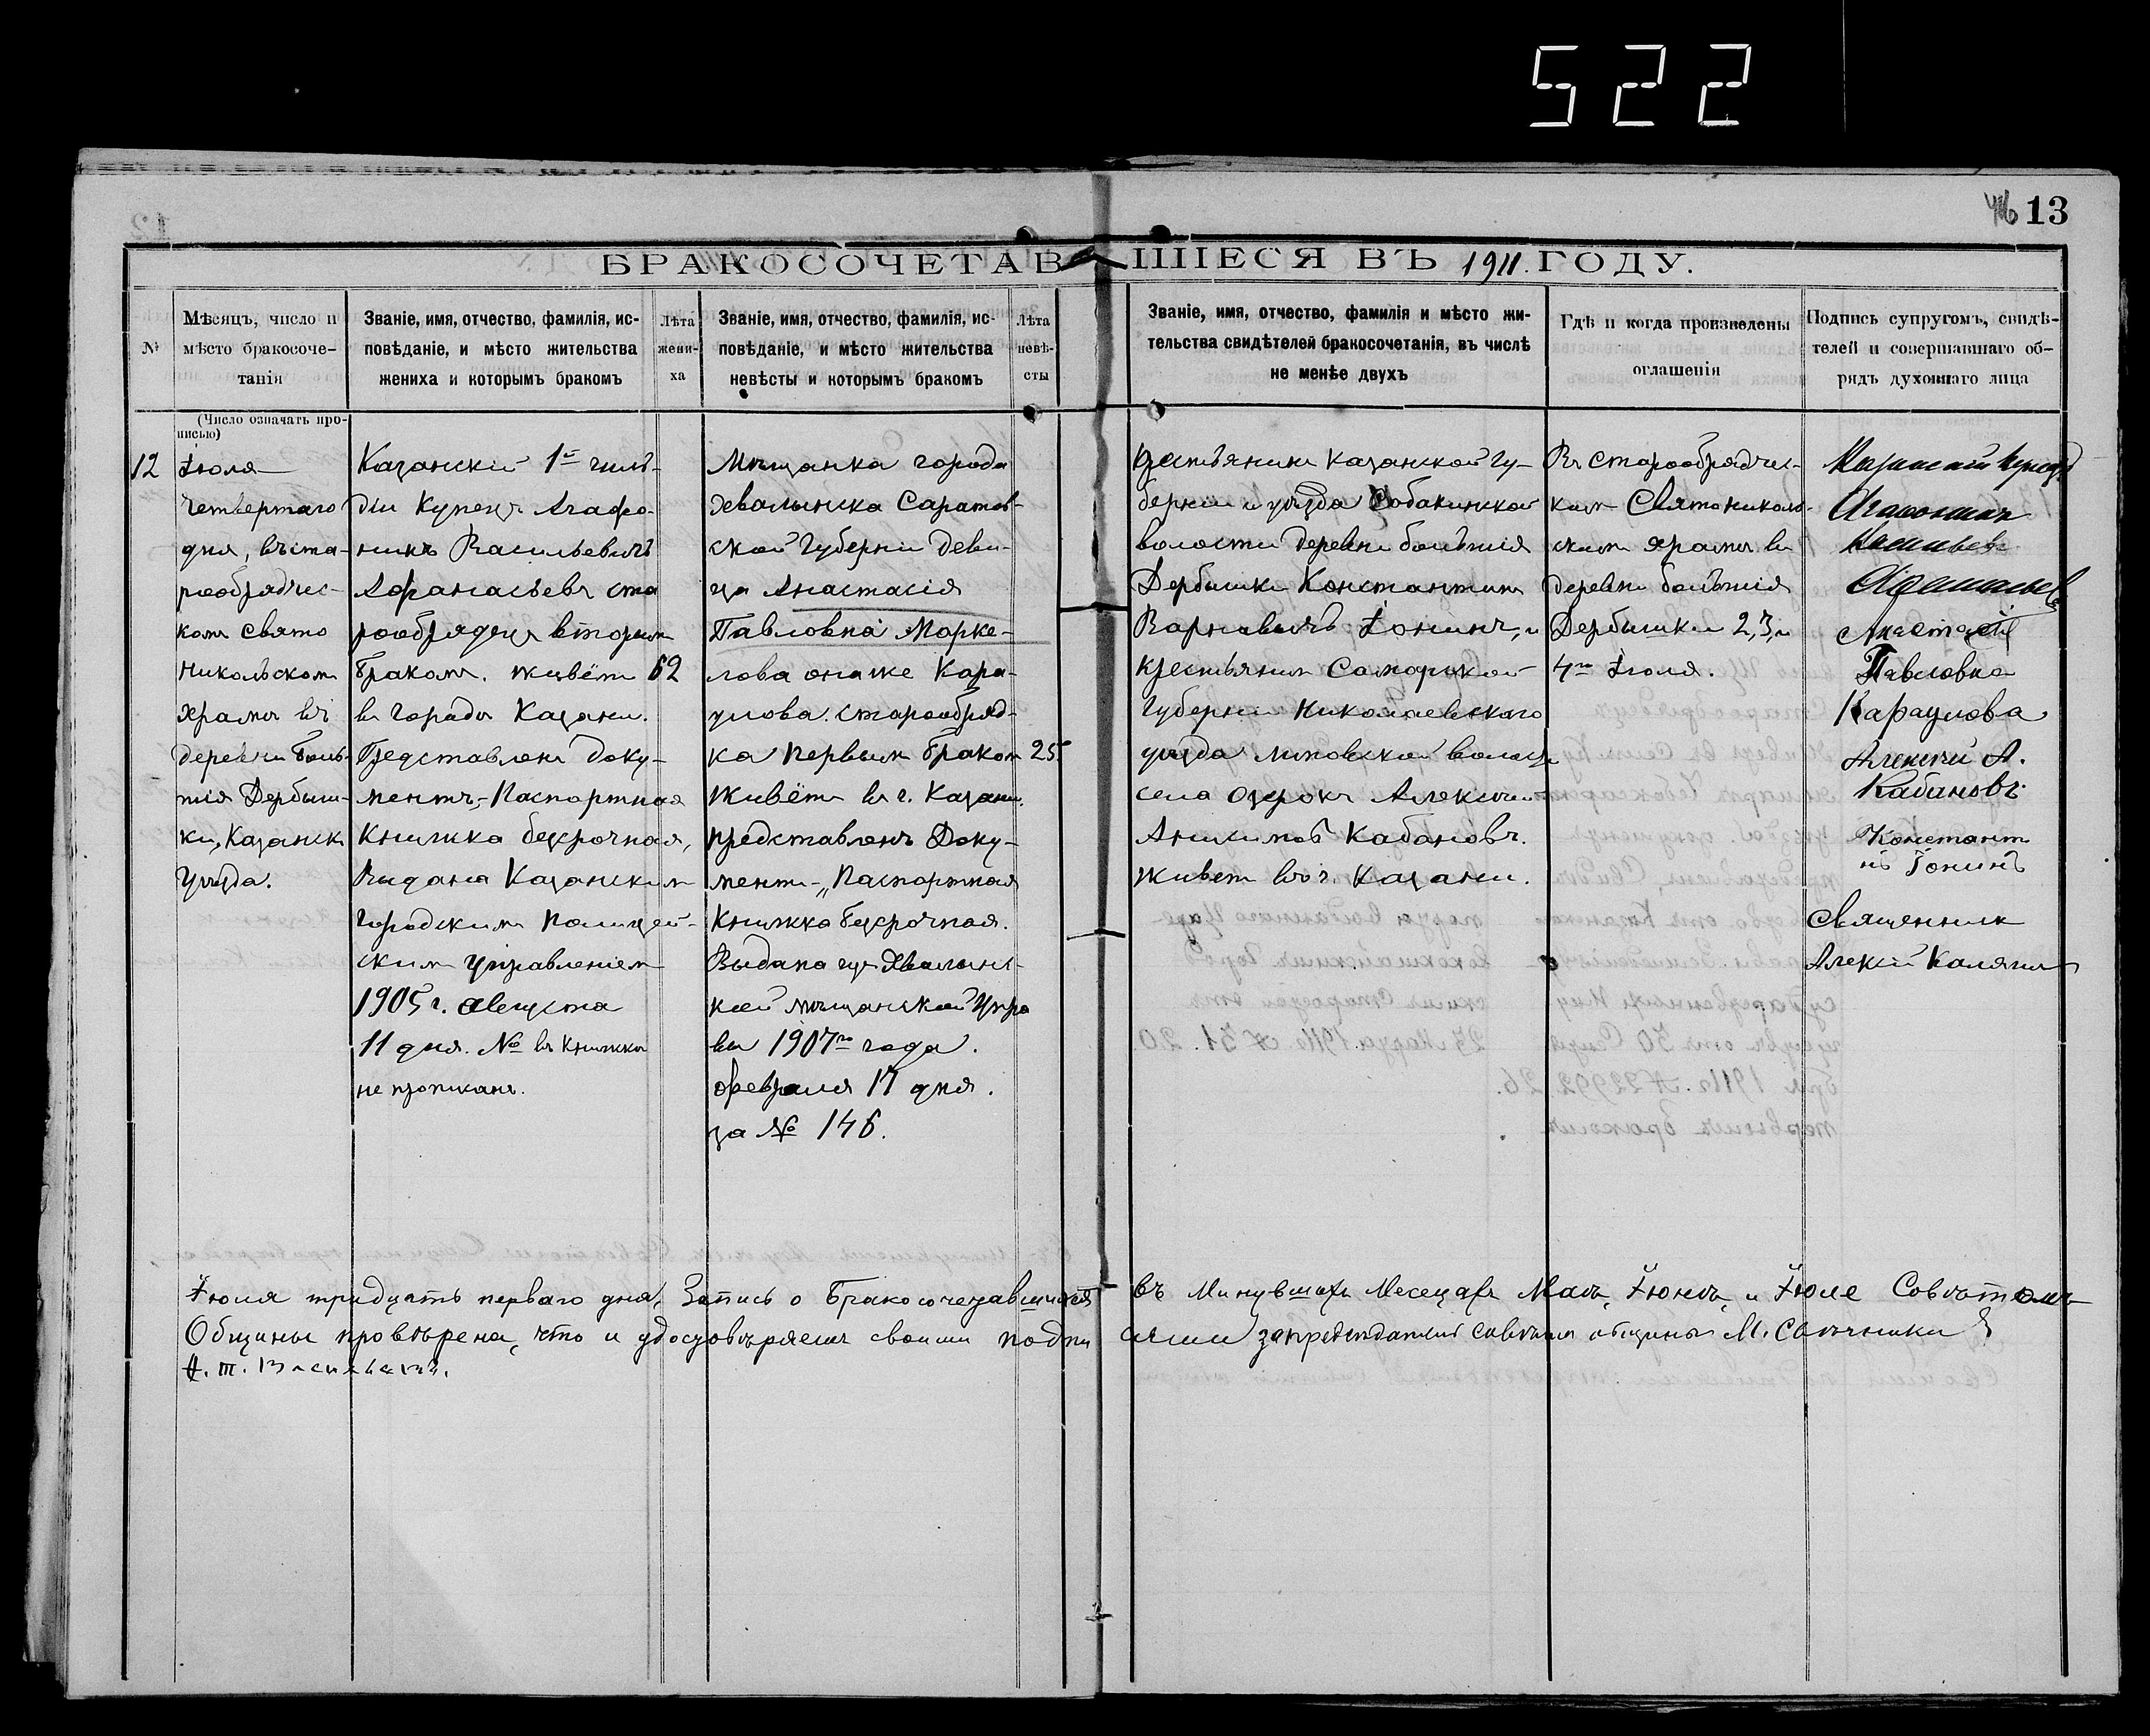 522
13
БРАКОСОЧЕТАВШІЕСЯ ВЪ 1911. ГОДУ.
№
Мѣсяцъ, число и
мѣсто бракосоче-
танія
Званіе, имя, отчество, фамилія, ис-
повѣданіе, и мѣсто жительства
жениха и которымъ бракомъ
Лѣта
жени-
ха
Званіе, имя, отчество, фамилія, ис-
повѣданіе, и мѣсто жительства
невѣсты и которымъ бракомъ
Лѣта
невѣ-
сты
Званіе, имя, отчество, фамилія и мѣсто жи-
тельства свидѣтелей бракосочетанія, въ числѣ
не менѣе двухъ
Гдѣ и когда произведены
оглашенія
Подпись супругомъ, свидѣ-
телей и совершавшаго об-
рядъ духовнаго лица
(Число означать про-
писью)
12
Іюля
четвертаго
дня, въ ста-
рообрядчес-
комъ Свято
Никольскомъ
храмѣ въ
деревни Боль-
шія Дербыш-
ки, Казанск.
Уѣзда.
Казанскій 1й гиль-
діи Купецъ Агафо-
никъ Васильевичъ
Афанасьевъ ста
рообрядецъ вторым
бракомъ. живётъ
въ городѣ Казани.
Представленъ доку-
ментъ-Паспортная
Книжка безсрочная,
Выдана Казанскимъ
Городскимъ Полицей-
скимъ Управленіем
1905 г. Августа
11 дня. № въ Книжкѣ
не прописанъ.
62
Мѣщанка города
Хвалынска Саратов-
ской Губерніи деви-
ца Анастасія
Павловна Марке-
лова она же Кара-
улова. старообряд-
ка Первымъ бракомъ
Живётъ въ г. Казани.
представленъ Доку-
ментъ-„Паспортная
Книжка безсрочная.
Выдана изъ Хвалынс-
кой мѣщанской Упра
вы 1907го года.
февраля 17 дня.
за № 146.
25
Крестьянинъ Казанской Гу-
берніи и уѣзда Собакинской
волости деревни большія
Дербышки Константинъ
Варнавичъ Іонинъ, и
крестьянинъ Самарской
Губерніи Николаевскаго
уѣзда волости
села Озерокъ Алексѣй
Анисимовъ Кабановъ.
Живет въ г. Казани.
Въ Старообрядчес-
комъ Святониколь-
скомъ храмѣ въ
деревни большія
Дербышки 2, 3, и
4го Іюля.
Казанскій Купецъ
Агафоникъ
Васильев
Афанасьев
Анастасія
Павловна
Караулова
Алексѣй А.
Кабановъ
Константи
нъ Іонинъ
Священникъ
Алексій Калягин
Іюля тридцать перваго дня, Запись о Бракосочетавшихся въ Минувшихъ Месецахъ Маѣ, Іюнѣ, и Іюле Совѣтомъ
Общины провѣрена, что и удостовѣряемъ своими подпи сями запредседателя совѣта общины М.